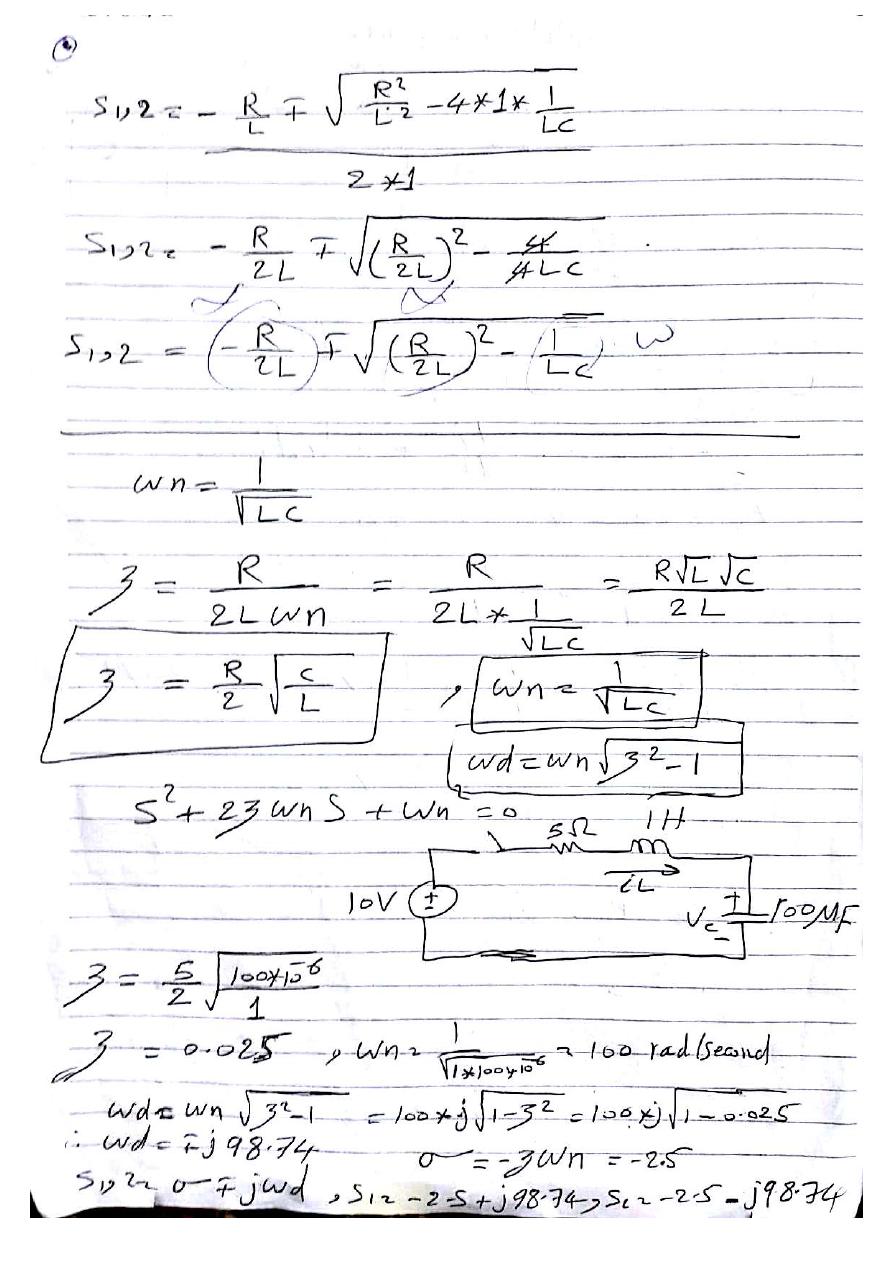 S1,2 = - R/L ∓ √(R²/L² - 4*1* 1/LC)
2*1
S1,2 = - R/2L ∓ √((R/2L)² - 4/4LC)
S1,2 = (- R/2L) ∓ √((R/2L)² - 1/LC) w
wn = 1/√LC
ʒ = R/(2L wn) = R/(2L * 1/√LC) = R√L √C / 2L
ʒ = R/2 √(C/L) , wn = 1/√LC
wd = wn √(ʒ²-1)
S² + 2ʒ wn S + wn² = 0
5Ω 1H
iL
10V ± Vc + - 100MF
ʒ = 5/2 √(100*10⁻⁶/1)
ʒ = 0.025 , wn = 1/√(1*100*10⁻⁶) = 100 rad/second
wd = wn √(ʒ²-1) = 100*j √(1-ʒ²) = 100*j √(1-0.025
∴ wd = ∓j 98.74 σ = -ʒwn = -2.5
S1,2 = σ ∓ jwd , S1 = -2.5+j98.74, S2 = -2.5-j98.74